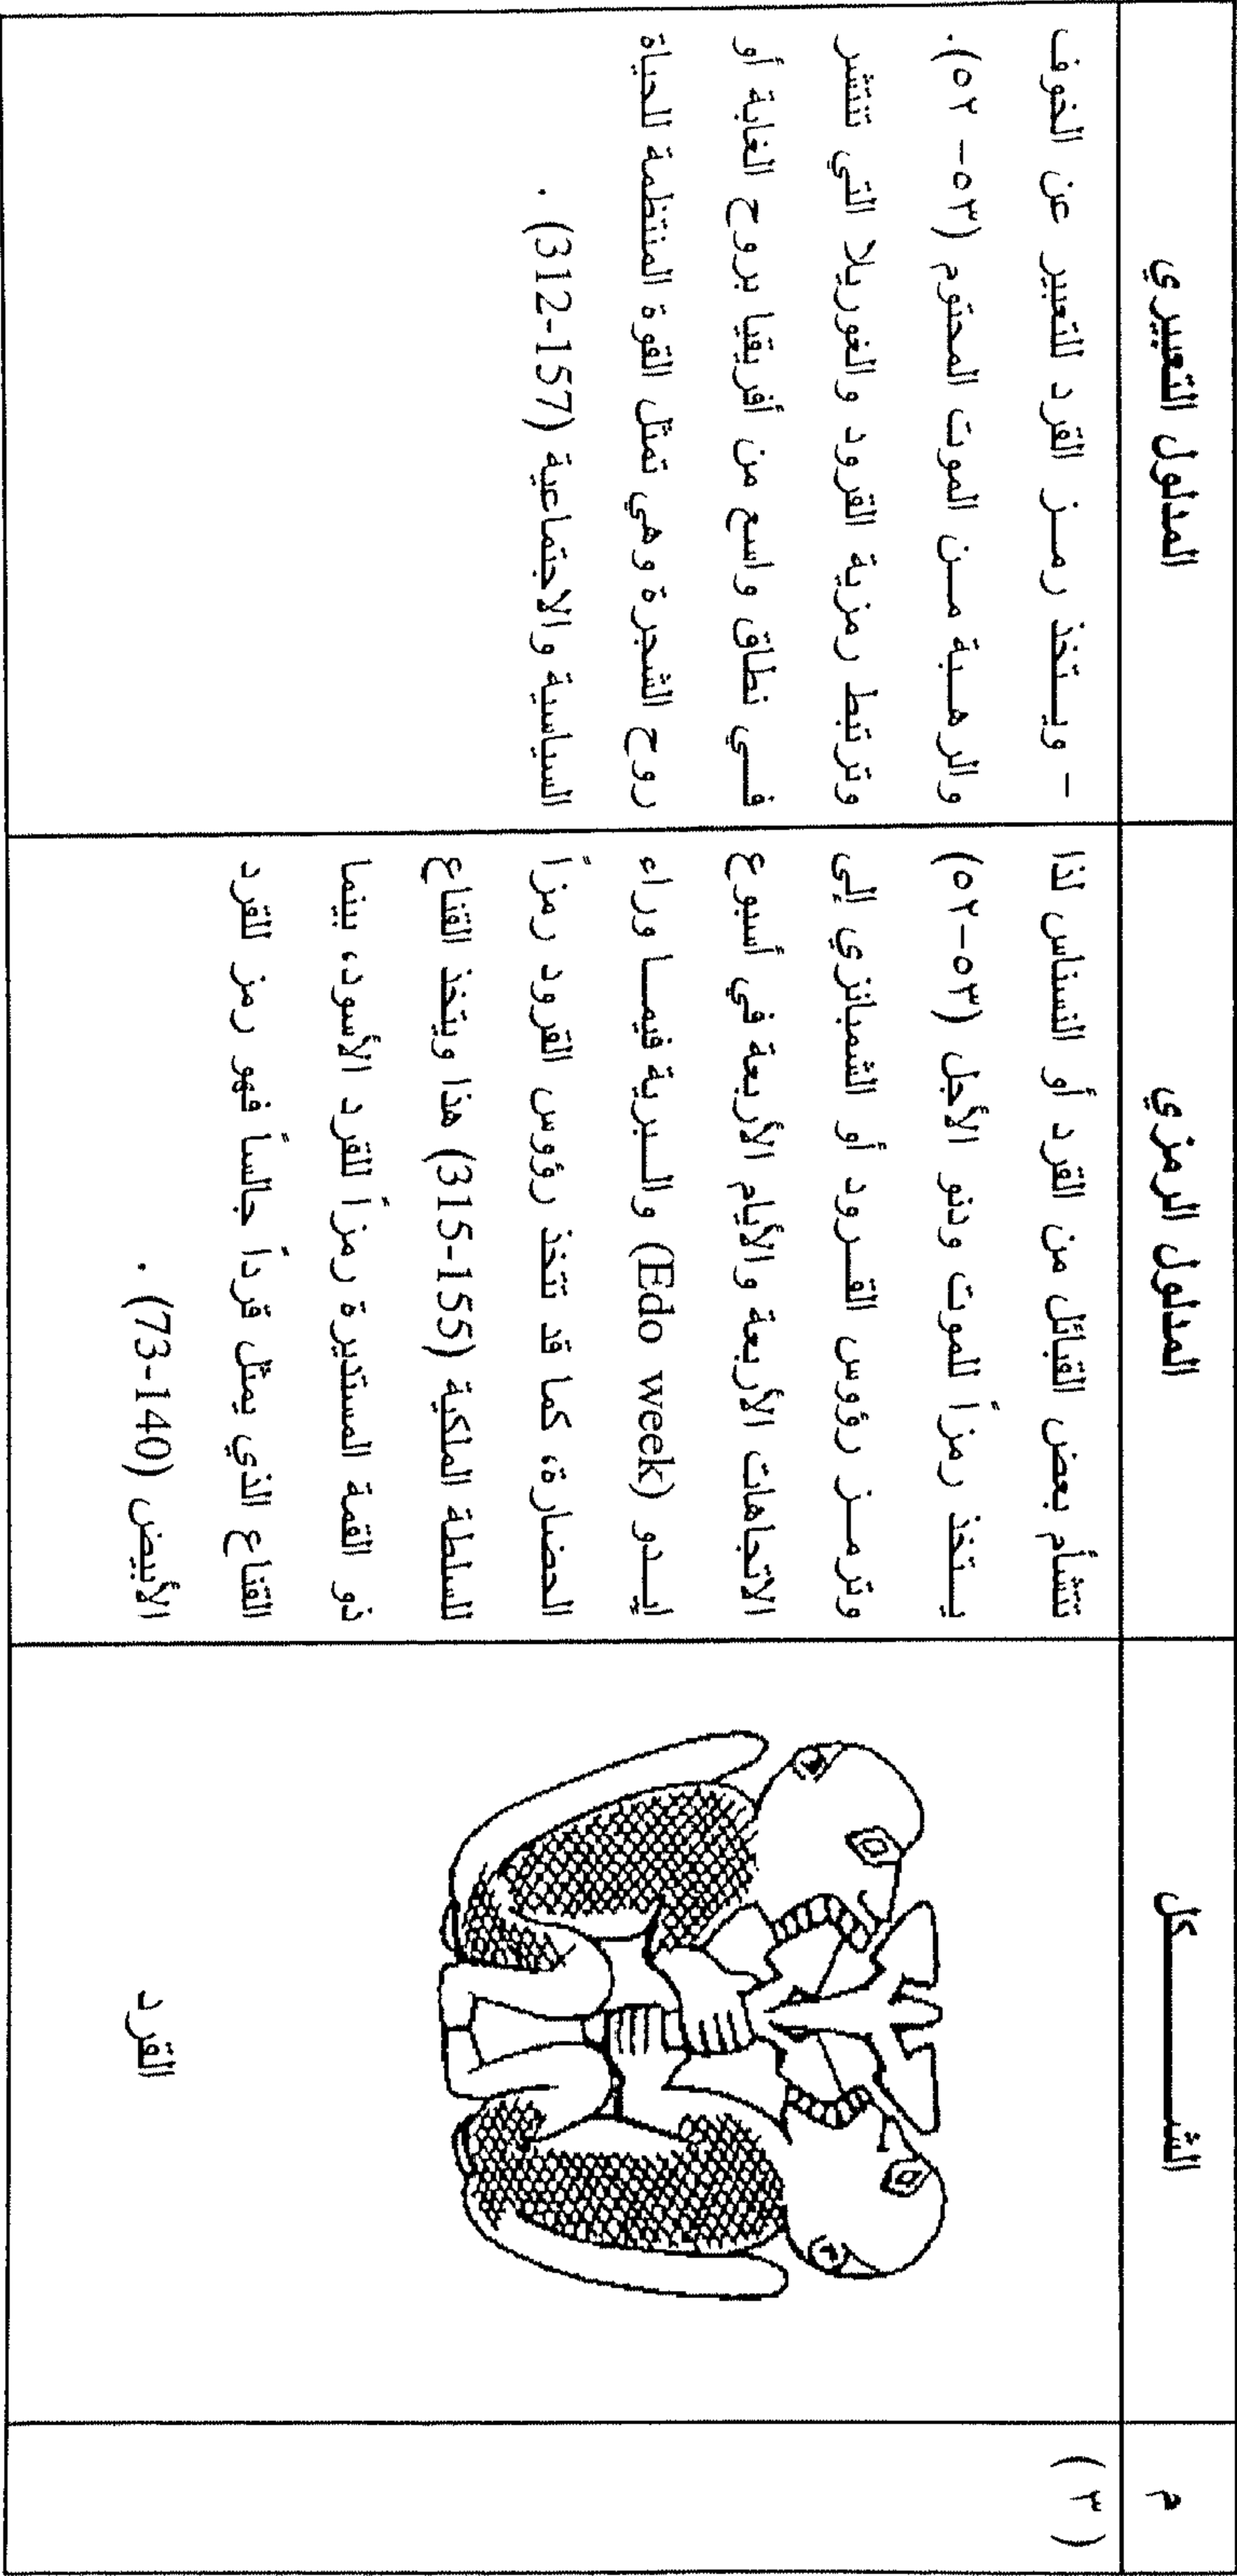 م
الشــــــــكل
المدلول الرمزي
المدلول التعبيري
( ٣ )
القرد
تتشأم بعض القبائل من القرد أو النسناس لذا
يــتخذ رمزاً للموت ودنو الأجل (٥٣-٥٢)
وترمــز رؤوس القــرود أو الشمبانزي إلى
الاتجاهات الأربعة والأيام الأربعة في أسبوع
إيــدو (Edo week) والــبرية فيمــا وراء
الحضارة، كما قد تتخذ رؤوس القرود رمزاً
للسلطة الملكية (155-315) هذا ويتخذ القناع
ذو القمة المستديرة رمزاً للقرد الأسود، بينما
القناع الذي يمثل قرداً جالساً فهو رمز للقرد
الأبيض (140-73) .
- ويــتخذ رمــز القرد للتعبير عن الخوف
والرهــبة مــن الموت المحتوم (٥٣- ٥٢).
وترتبط رمزية القرود والغوريلا التي تنتشر
فــي نطاق واسع من أفريقيا بروح الغابة أو
روح الشجرة وهي تمثل القوة المنتظمة للحياة
السياسية والاجتماعية (157-312) .